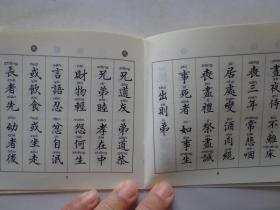 晝夜侍 不離床
喪三年 常悲咽
居處變 酒肉絕
喪盡禮 祭盡誠
事死者 如事生
出則弟
兄道友 弟道恭
兄弟睦 孝在中
財物輕 怨何生
言語忍 忿自泯
或飲食 或坐走
長者先 幼者後